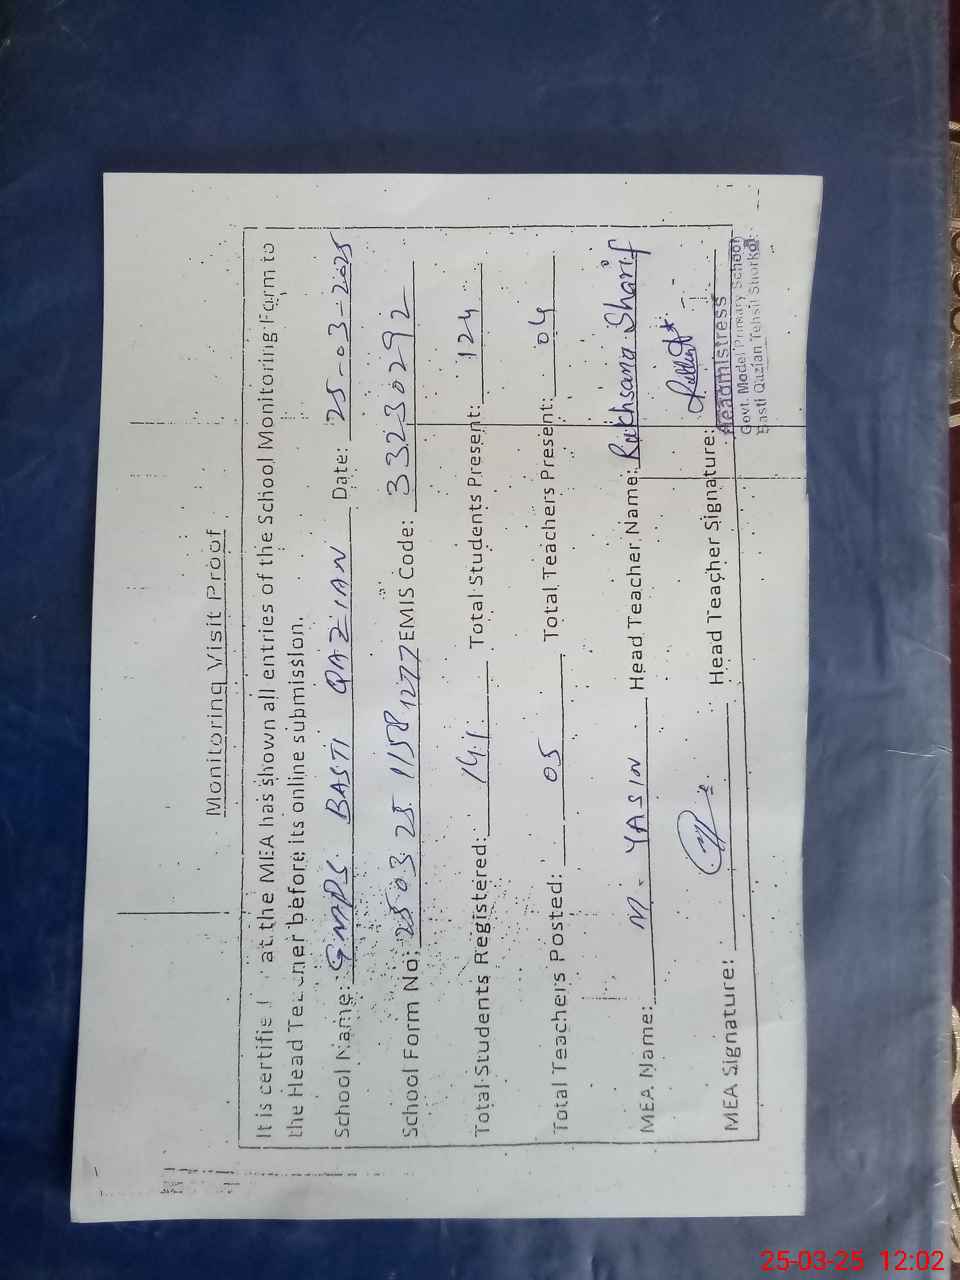 Monitoring Visit Proof
It is certifie at the MEA has shown all entries of the School Monitoring Form to
the Head Teacher before its online submission.
School Name: GMPS BASTI QAZIAN Date: 25-03-2025
School Form No: 25 03 25 1158 1277 EMIS Code: 33230292
Total Students Registered: 141 Total Students Present: 124
Total Teachers Posted: 05 Total Teachers Present: 04
MEA Name: M. YASIN Head Teacher Name: Rukhsana Sharif
MEA Signature: Head Teacher Signature:
Headmistress
Govt. Model Primary School
Basti Qazian Tehsil Shorkot
25-03-25 12:02